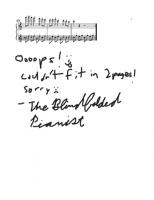 Oooops!
Couldn't fit in 2 pages!
Sorry
- The Blindfolded
Pianist